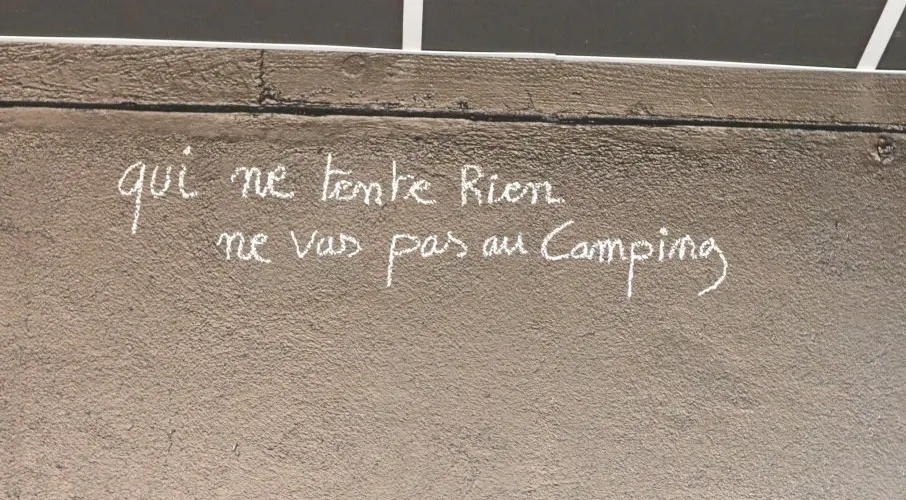 qui ne tente Rien
ne vas pas au Camping